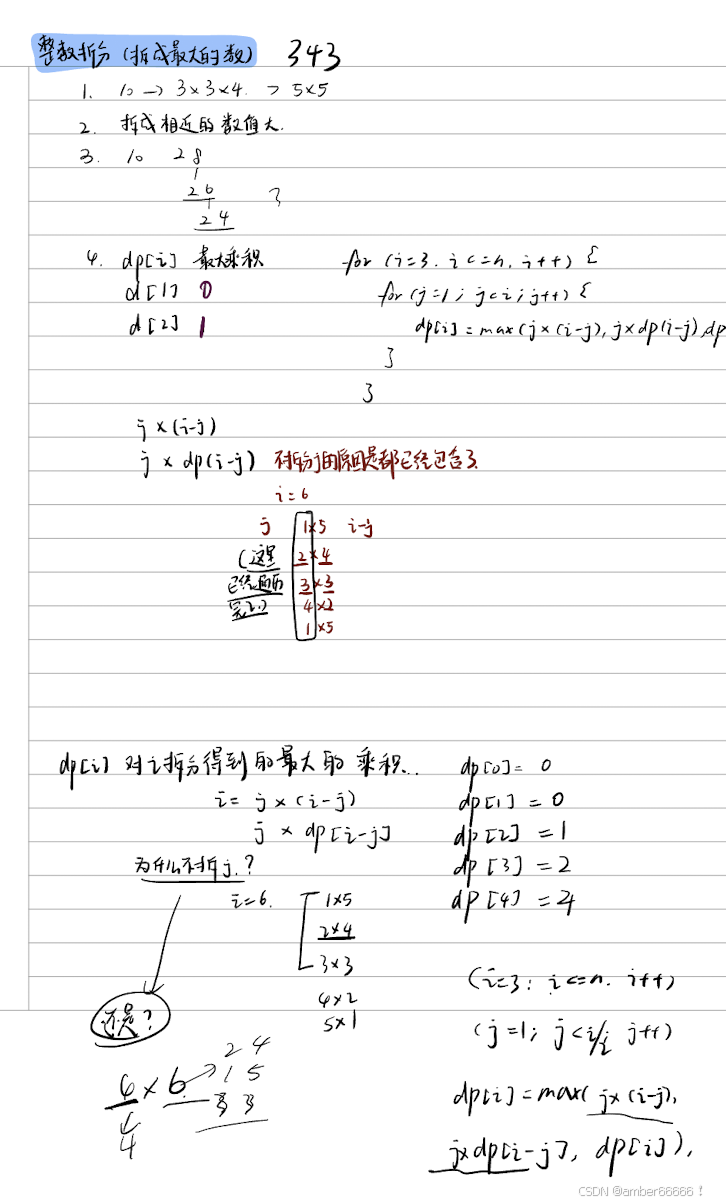 整数拆分（拆成最大的数） 343
1. 10 → 3×3×4 > 5×5
2. 拆成相近的数值大.
3. 10 2 8
2 6 3
2 4
4. dp[i] 最大乘积 for (i=3. i<=n, i++) {
d[1] 0 for (j=1; j<i; j++) {
d[2] 1 dp[i]=max(j×(i-j), j×dp(i-j),dp
}
}
j×(i-j)
j × dp(i-j) 不拆分j的原因是都已经包含了
i=6
j 1×5 i-j
(这里 2×4
已经遍历 3×3
完了) 4×2
1×5
dp[i] 对i拆分得到的最大的乘积.. dp[0]= 0
i= j×(i-j) dp[1]=0
j × dp[i-j] dp[2]=1
为什么不拆j.? dp[3]=2
i=6. 1×5 dp[4]=4
2×4
3×3
4×2 (i=3; i<=n. i++)
还是? 5×1
2 4 (j=1; j<i/ j++)
6×6 1 5
3 3 dp[i]=max( j×(i-j),
4
j×dp[i-j], dp[i]),
CSDN @amber66666！